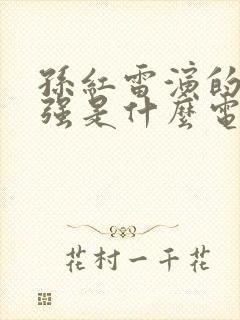 孫紅雷演的
強是什麼電
花村一千花